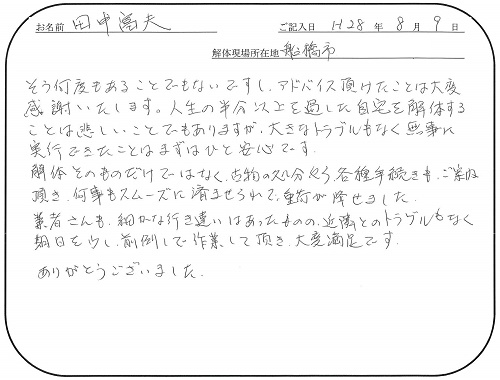 お名前 田中富夫 ご記入日 H28年 8月 9日
解体現場所在地 船橋市
そう何度もあることでもないですし、アドバイス頂けたことは大変
感謝いたします。人生の半分以上を過した自宅を解体する
ことは悲しいことでもありますが、大きなトラブルもなく無事に
実行できたことはまずはひと安心です。
解体そのものだけではなく、古物の処分やら、各種手続きも、ご案内
頂き、何事もスムーズに済ませられて、重荷が降せました。
業者さんも、細かな行き違いはあったものの、近隣とのトラブルもなく
期日を少し前倒しで作業して頂き、大変満足です。
ありがとうございました。